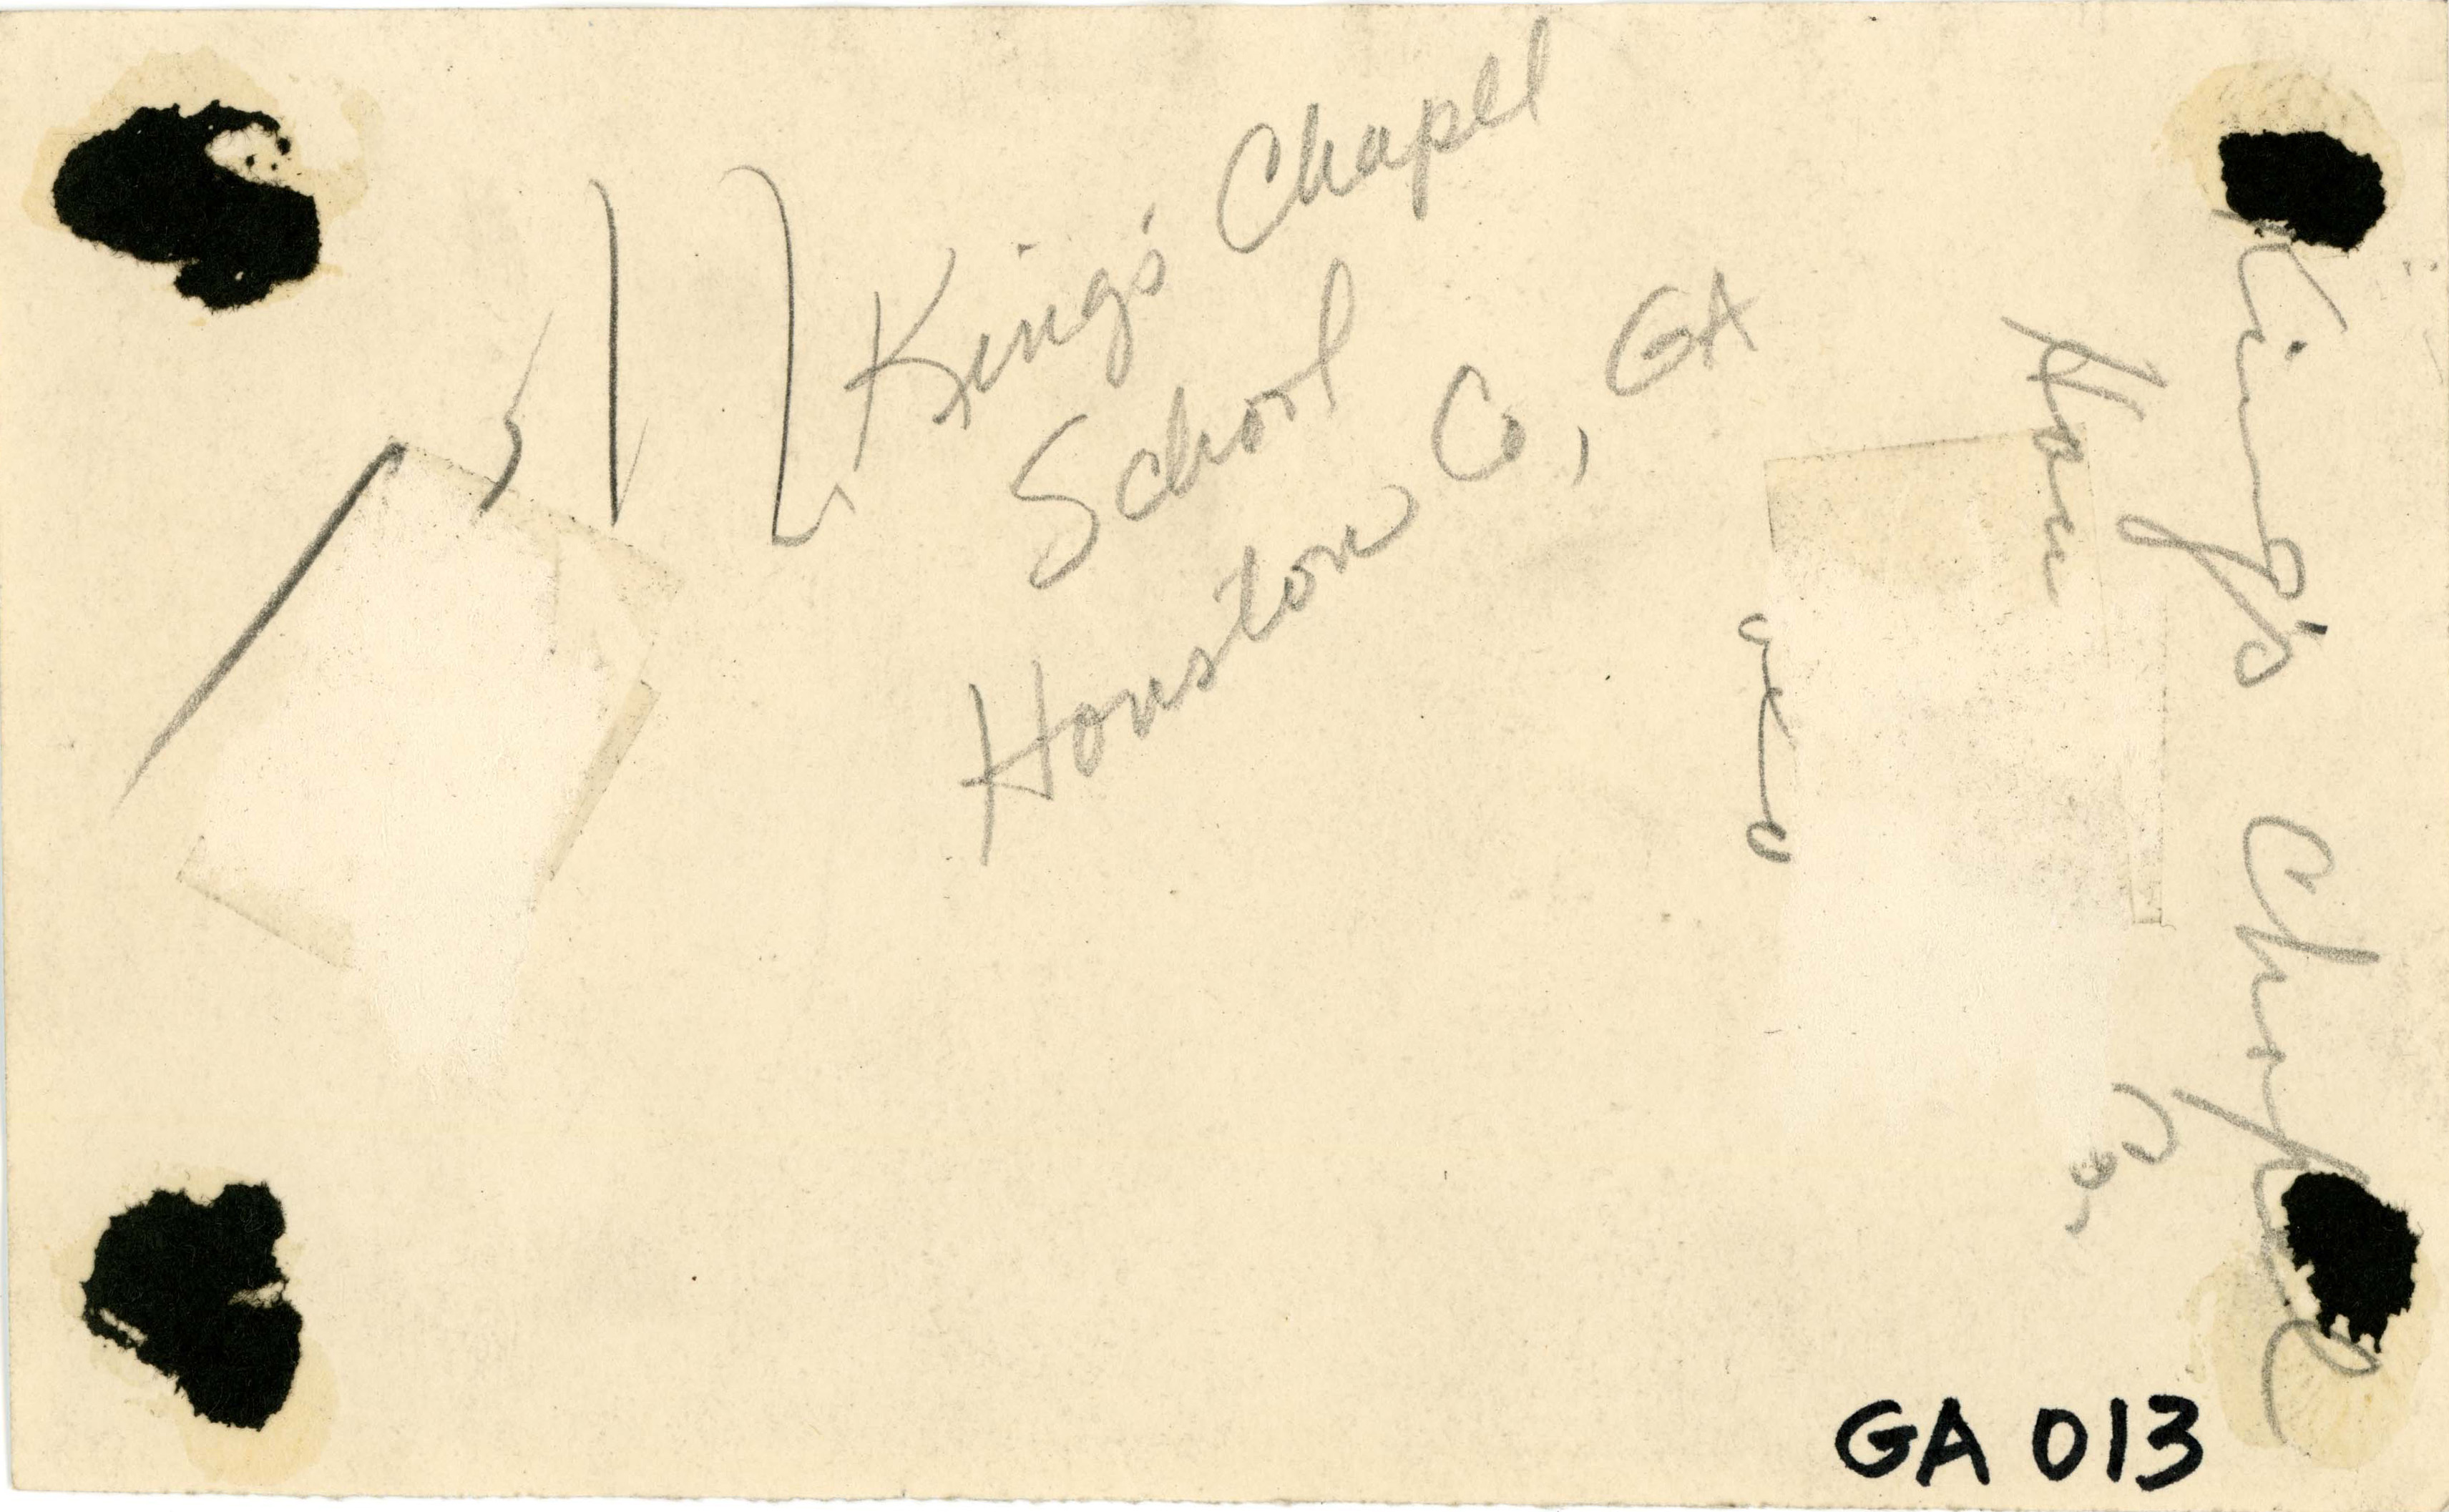 King's Chapel
School
Houston Co, GA
King's Chapel
Co.
GA 013